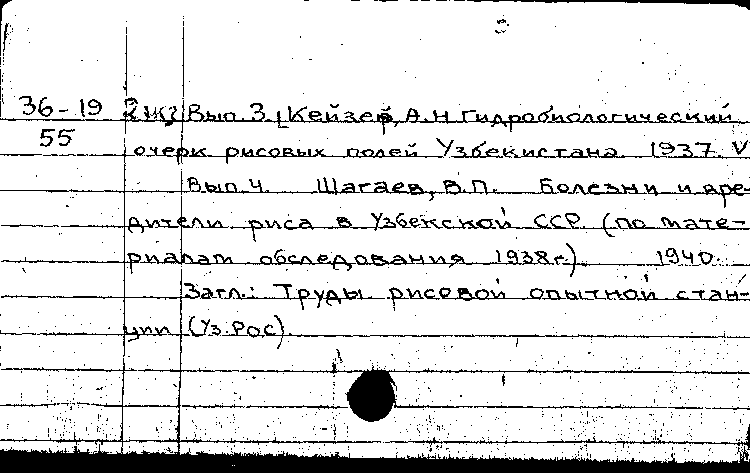 36-19 2 экз Вып. 3. [Кейзер, А.Н. Гидробиологический
55 очерк рисовых полей Узбекистана. 1937. V
Вып. 4. Шагаев, В.П. Болезни и вре-
дители риса в Узбекской ССР. (по мате-
риалам обследования 1938 г.). 1940.
Загл.: Труды рисовой опытной стан-
ции (Уз.РОС).